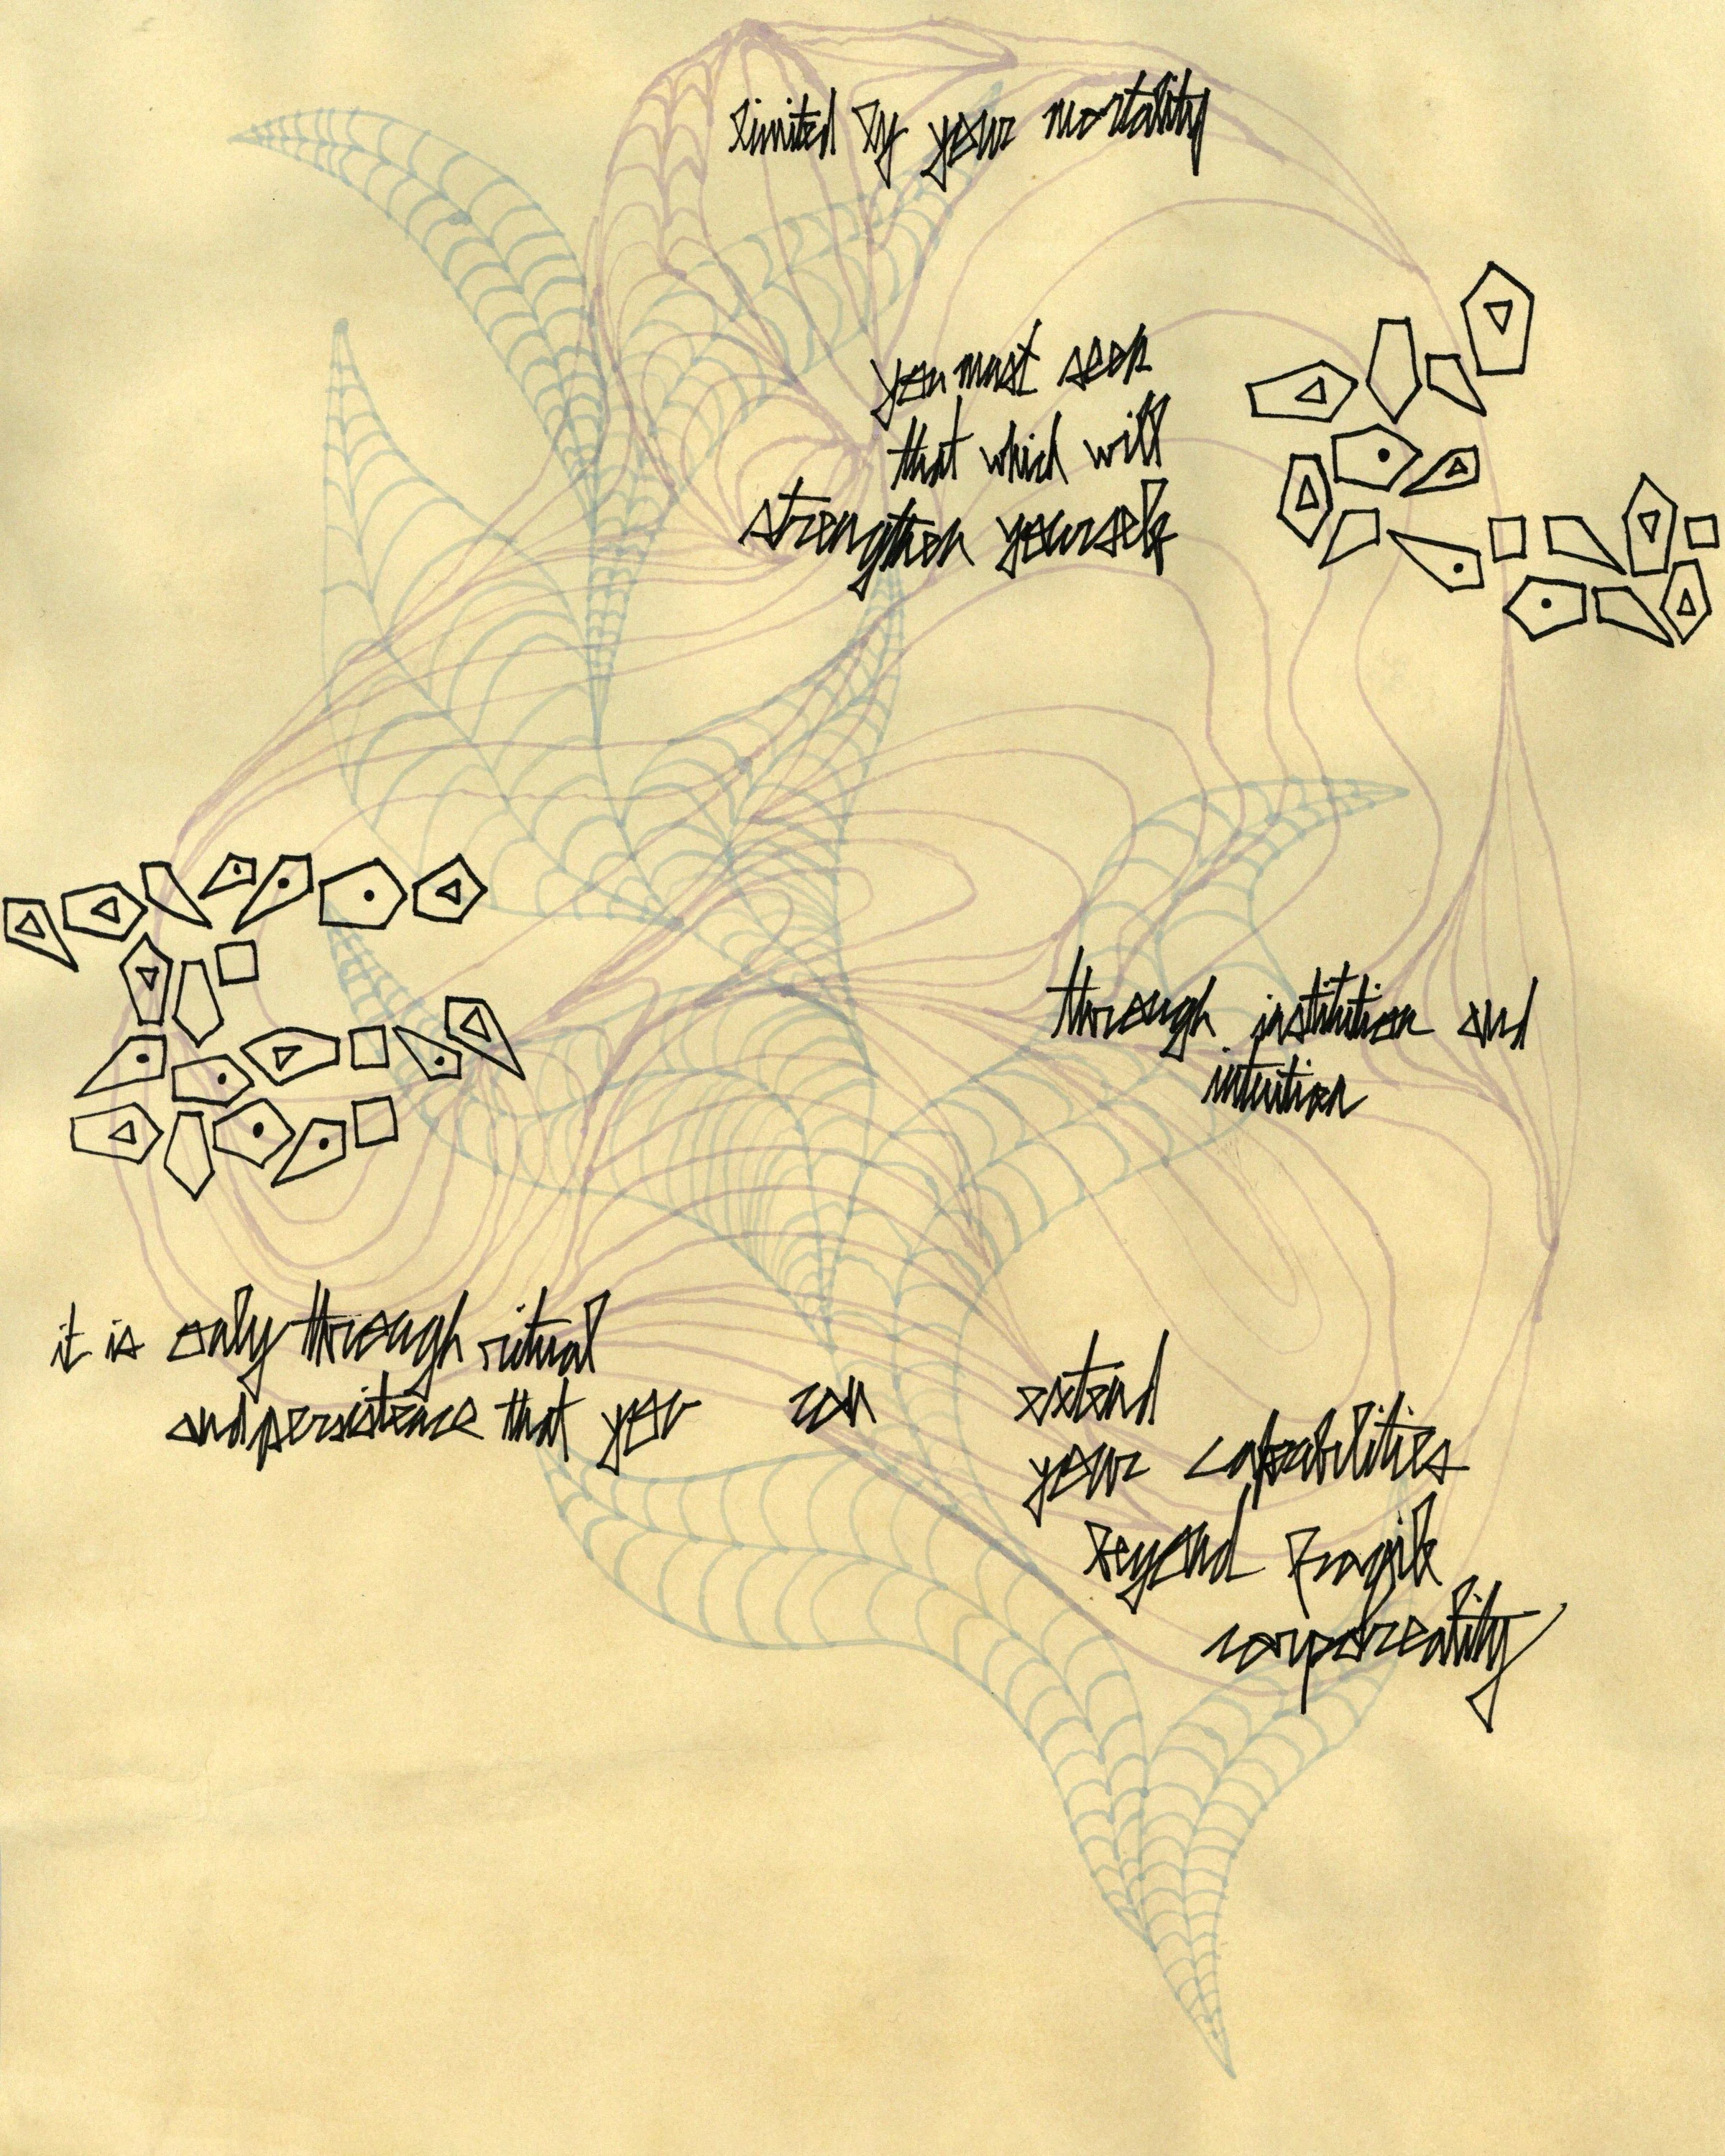 limited by your mortality
you must seek
that which will
strengthen yourself
through institution and
intuition
it is only through ritual
and persistence that you can extend
your capabilities
beyond fragile
corporeality